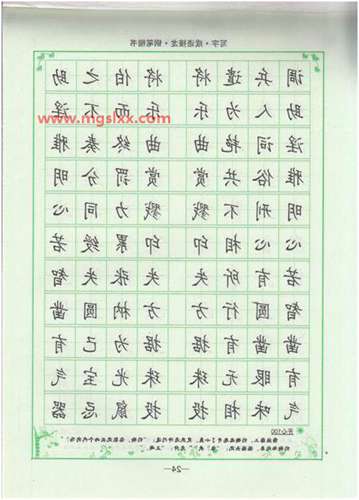 写字·成语接龙·钢笔楷书
调兵遣将 将伯之助
助人为乐 乐而不淫
www.mgslxx.com
淫词艳曲 曲终奏雅
雅俗共赏 赏罚分明
明刑不戮 戮力同心
心心相印 印累绶若
若有所失 失张失智
智圆行方 方枘圆凿
凿凿有据 据为己有
有眼无珠 珠光宝气
气味相投 投鼠忌器
开心100
—24—